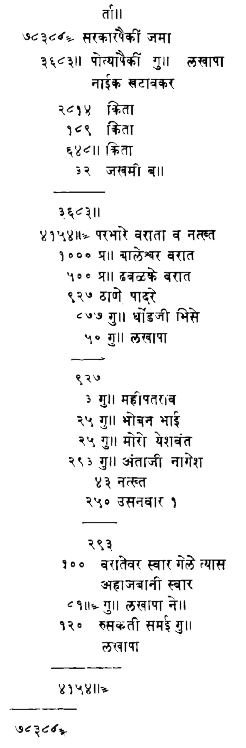 र्ता॥
७८३८॥= सरकारपैकीं जमा
३६८३॥ पोत्यापैकीं गु॥ लखापा
नाईक खटावकर
२८१५ किता
१८९ किता
६४८॥ किता
३२ जखमी ब॥
३६८३॥
४१५४॥= परभारे वराता व नत्ख्त
१००० प्र॥ वालेश्वर वरात
५०० प्र॥ ढवळके वरात
९२७ ठाणे पादरे
८७७ गु॥ धोंडजी भिसे
५० गु॥ लखापा
९२७
३ गु॥ महीपतराव
२५ गु॥ भोवन भाई
२५ गु॥ मोरो येशवंत
२९३ गु॥ अंताजी नागेश
४३ नत्ख्त
२५० उसनवार १
२९३
१०० वरातेवर स्वार गेले त्यास
अहाजबानी स्वार
८१॥= गु॥ लखापा ने॥
१२० रुसकती समई गु॥
लखापा
४१५४॥=
७८३८=